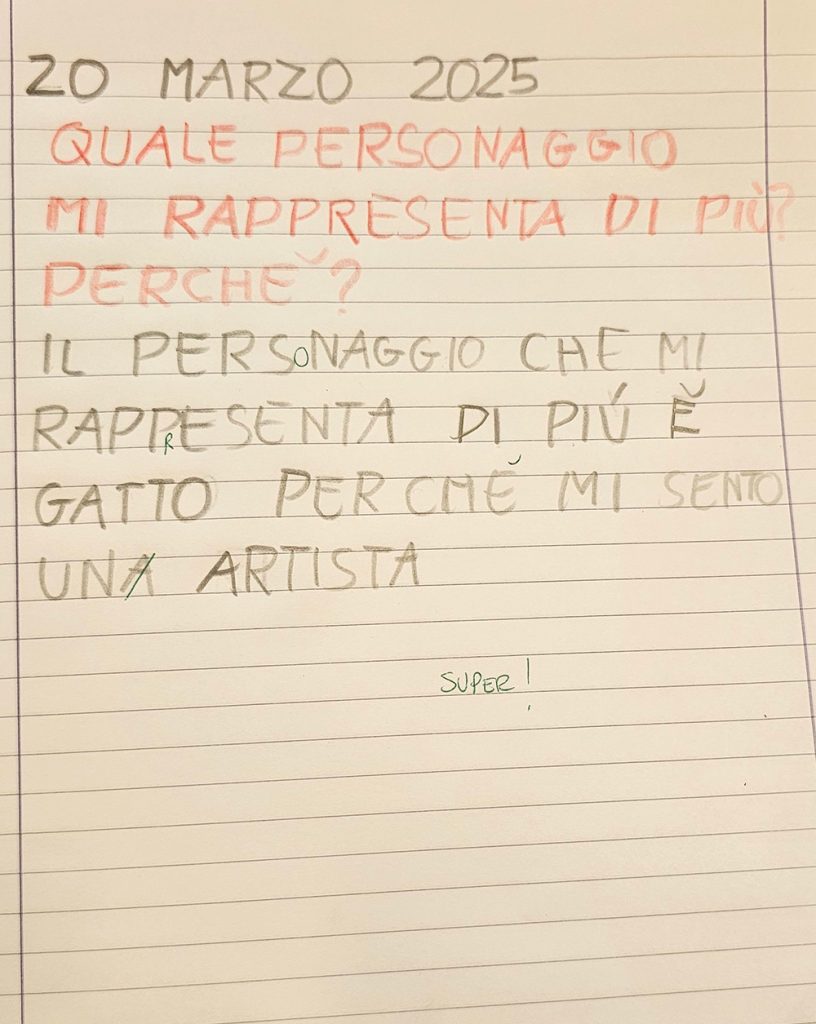 20 MARZO 2025
QUALE PERSONAGGIO
MI RAPPRESENTA DI PIÙ?
PERCHĔ?
IL PERSONAGGIO CHE MI
RAPPRESENTA DI PIÚ Ĕ
GATTO PERCHĔ MI SENTO
UNA ARTISTA
SUPER!